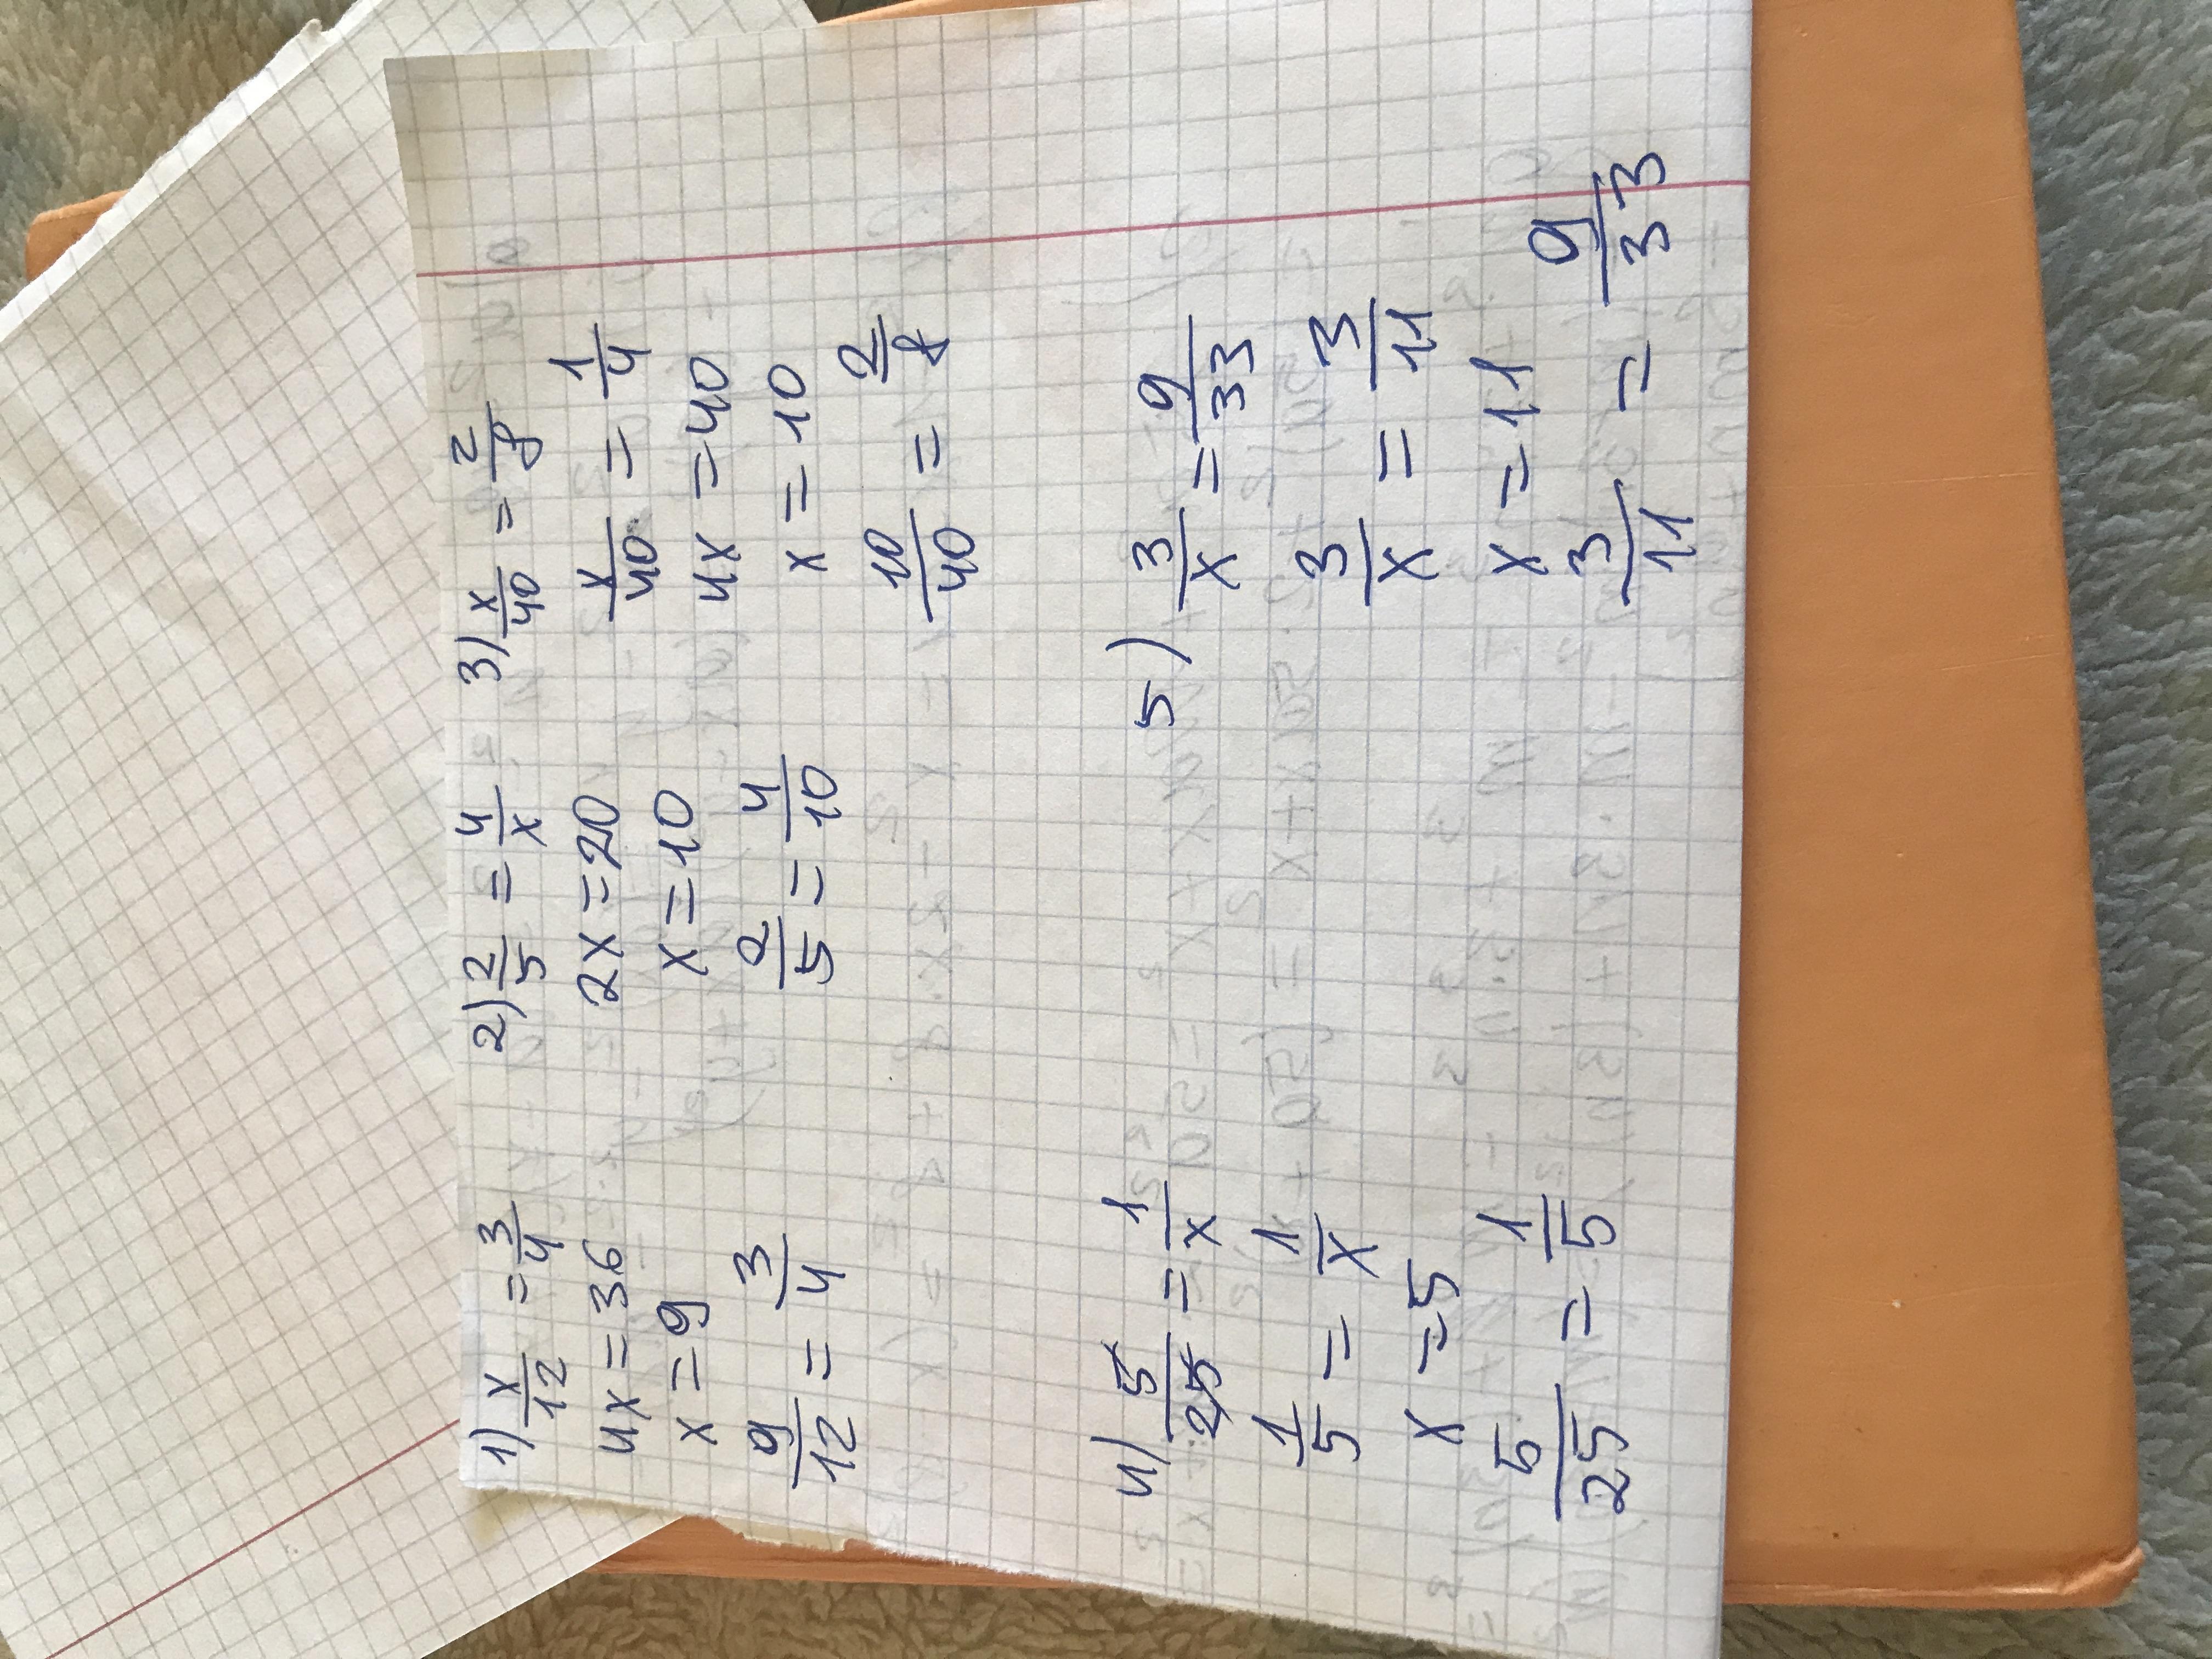 1) x/12 = 3/4
4x = 36
x = 9
9/12 = 3/4
2) 2/5 = 4/x
2x = 20
x = 10
2/5 = 4/10
3) x/40 = 2/8
x/40 = 1/4
4x = 40
x = 10
10/40 = 2/8
4) 5/25 = 1/x
1/5 = 1/x
x = 5
5/25 = 1/5
5) 3/x = 9/33
3/x = 3/11
x = 11
3/11 = 9/33